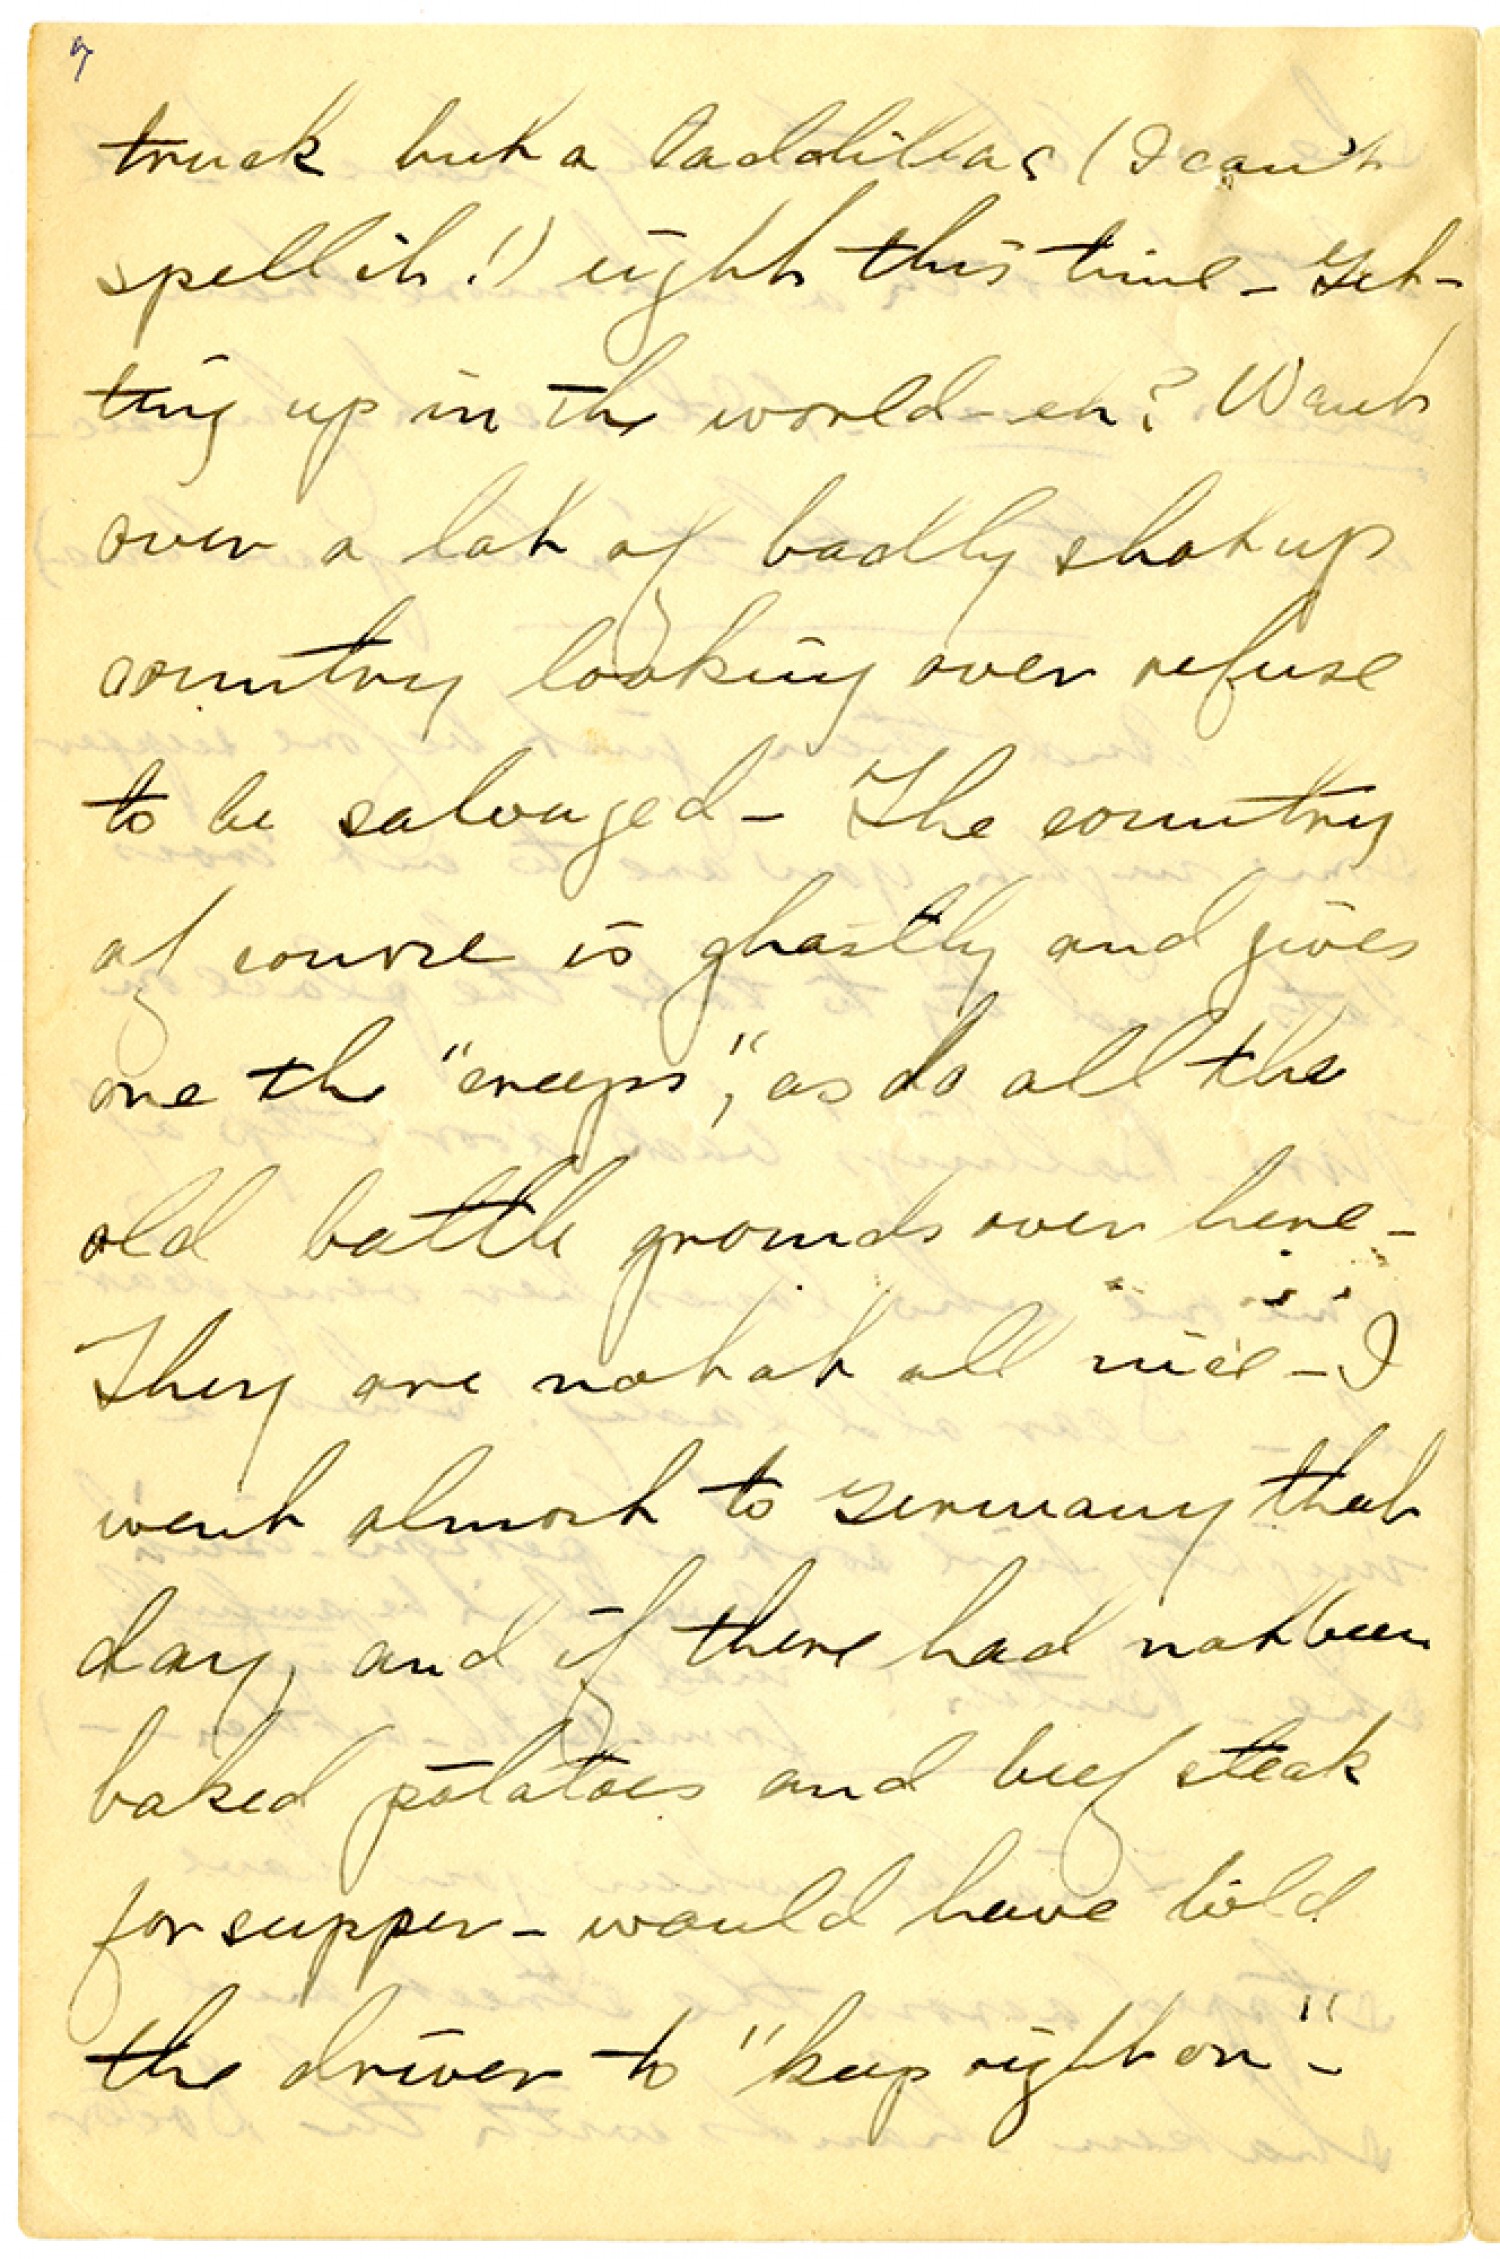 truck but a Caddillac (I can't
spell it!) eight this time - Get-
ting up in the world - eh? Went
over a lot of badly shot up
country looking over refuse
to be salvaged - The country
of course is ghastly and gives
one the "creeps", as do all the
old battle grounds over here -
They are not at all nice - I
went almost to Germany that
day, and if there had not been
baked potatoes and beef steak
for supper - would have told
the driver to "keep right on" -